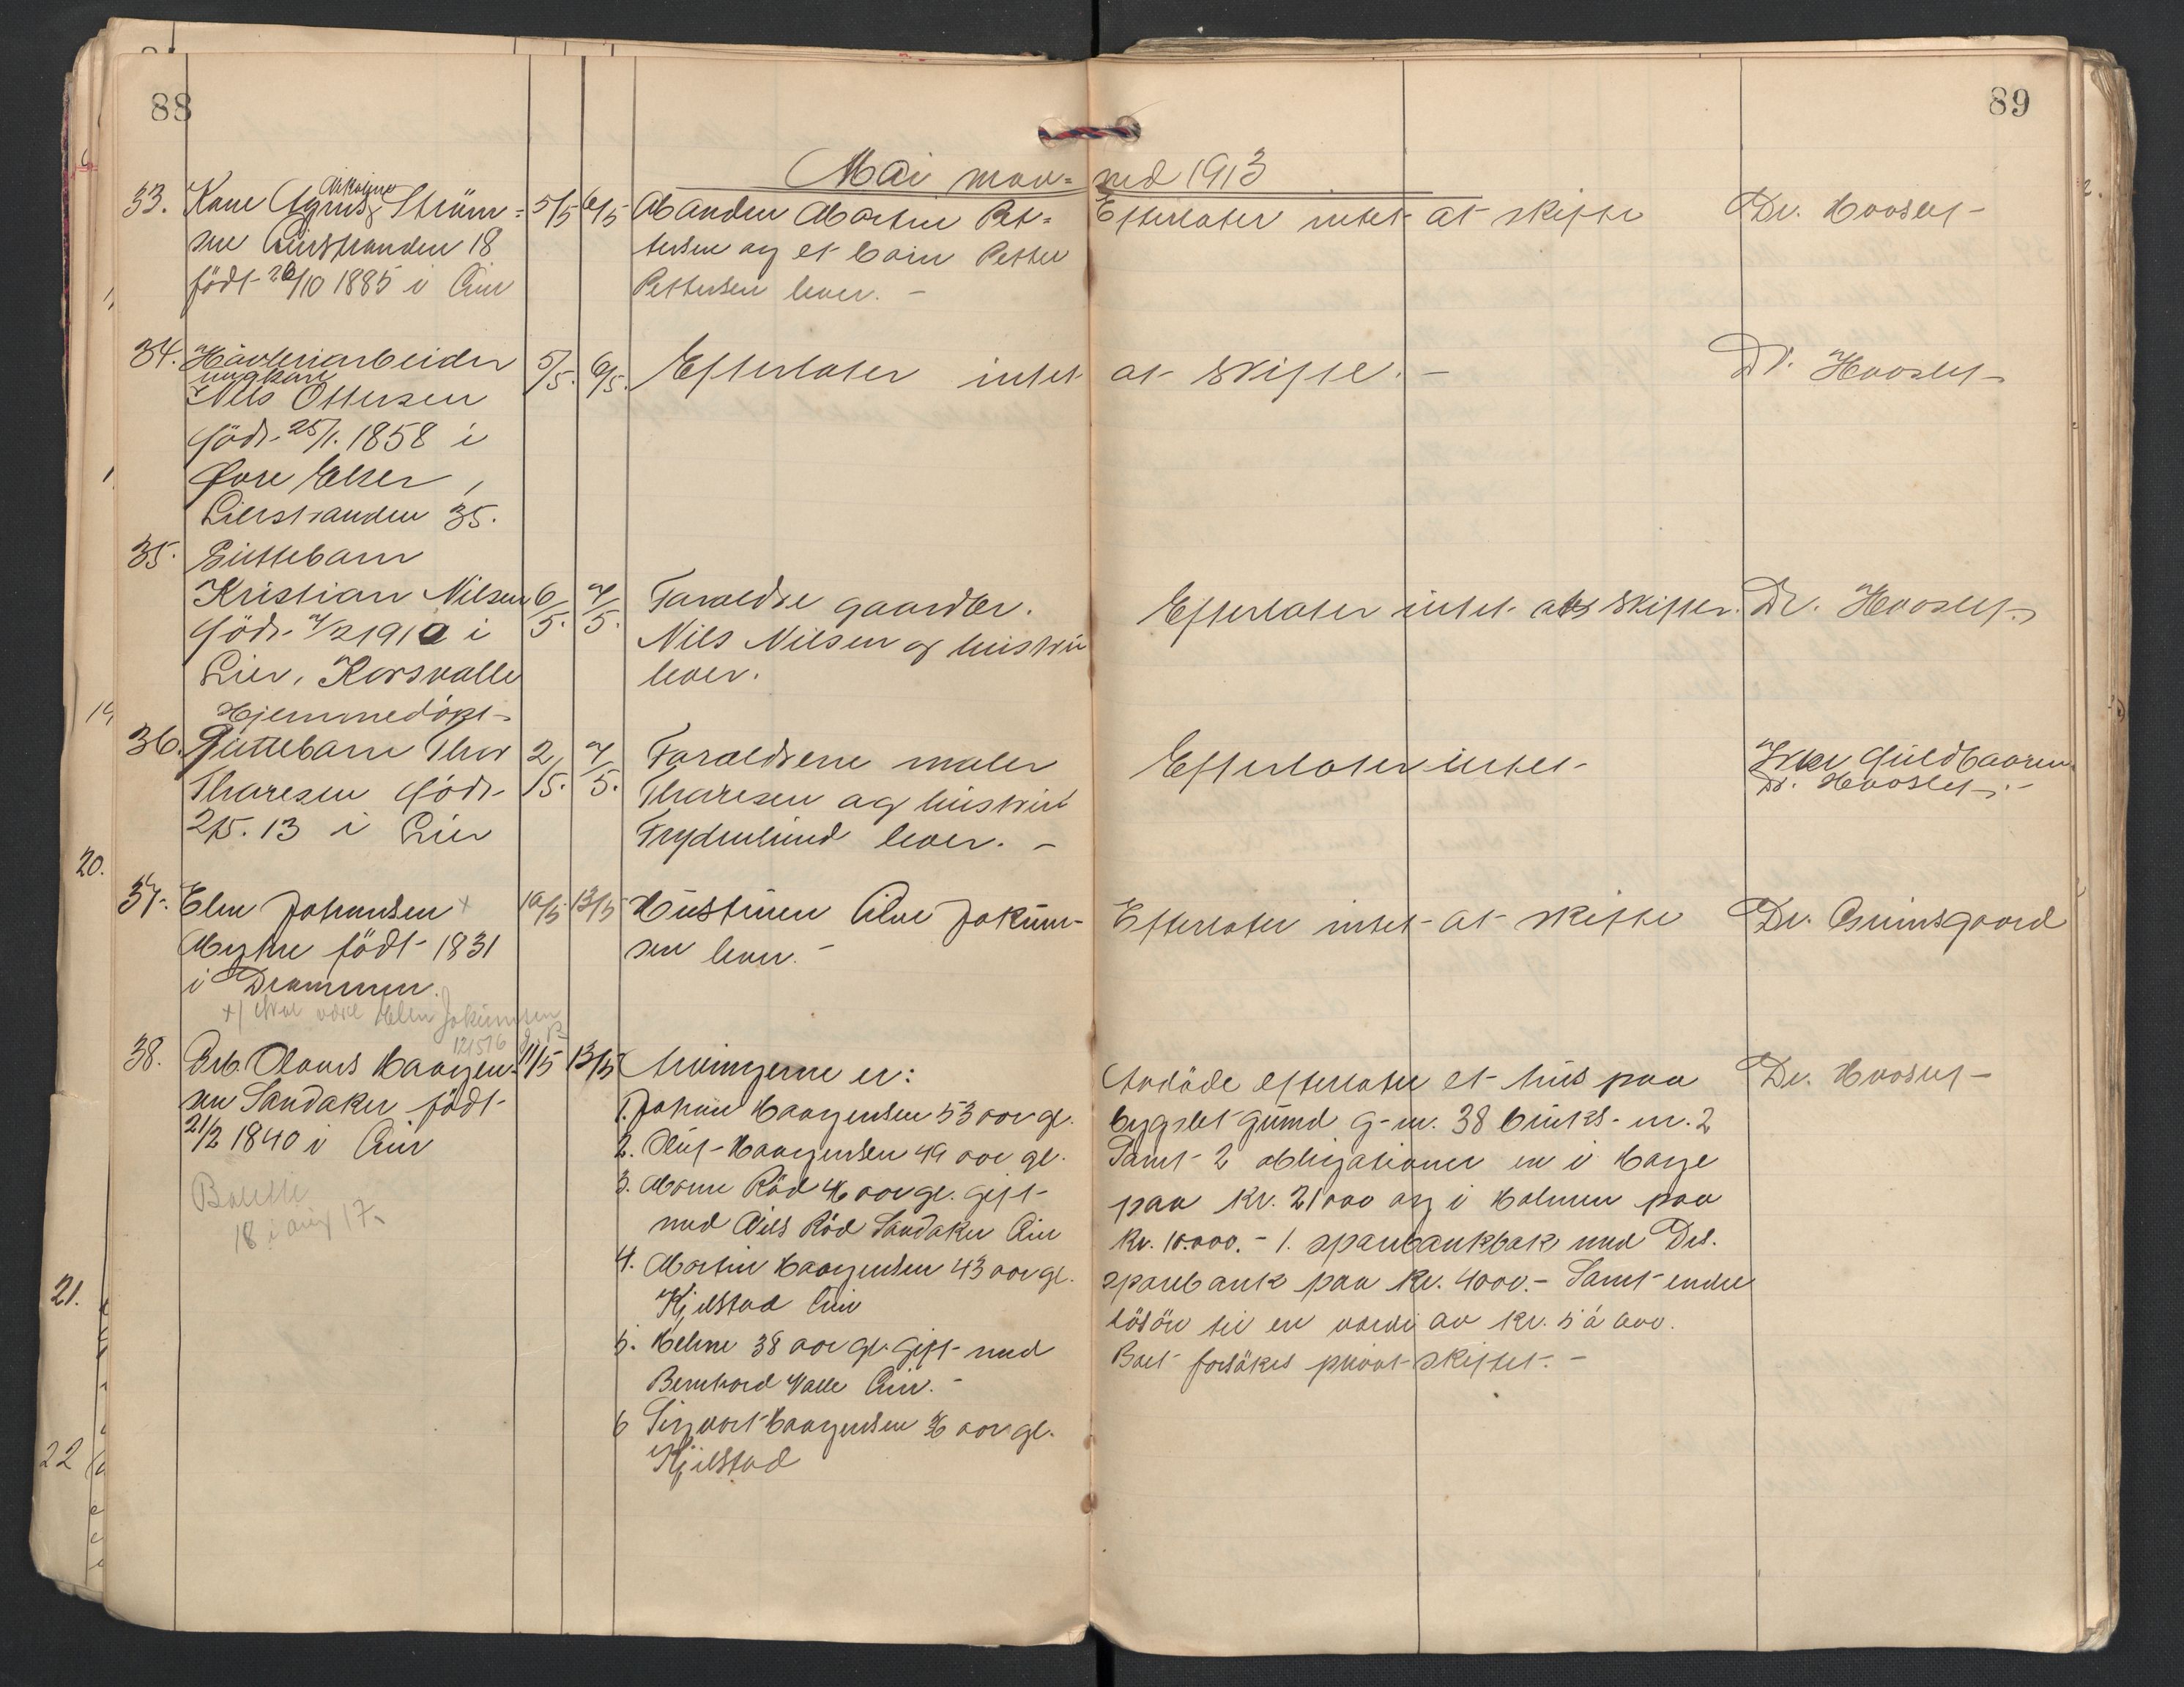 88
89
Mai maaned 1913
33. Kone Agnes Ström=
sne Lierstranden 18
födt 26/10 1885 i Lier
5/5 6/5
Manden Martin Pet=
tersen og et barn Petter
Pettersen lever. -
Efterlater intet at skifte
Dr. Haaslef
34. Hövleriarbeider
ungkar
Nils Ottersen
född. 25/1. 1858 i
Øvre Eker,
Lierstranden 35.
5/5. 6/5.
Efterlater intet at skifte. -
Dr. Haaslef
35. Guttebarn
Kristian Nilsen
född. 7/2 1910 i
Lier, Korsvalle
6/5. 7/5.
Foraeldre gaardbr.
Nils Nilsen og hustru
lever.
Efterlater intet at skifter.
Dr. Haaslef
Hjemmedöpt
36. Guttebarn Thor
Thoresen född
2/5. 13 i Lier
2/5. 7/5.
Foraeldrene maler
Thoresen og hustru
Frydenlund lever. -
Efterlater intet
Dr. Haaslef. -
37. Elen Johansen +
Myhre födt 1831
i Drammen.
+) skal være Helen Jokumsen
12/5 16
10/5 13/5
Hustruen Line Jokum-
sen lever. -
Efterlater intet at skifte
Dr. Grimsgaard
38. Arb. Olaves Haagen-
sen Sandaker födt
21/2 1840 i Lier
11/5 13/5
Arvingerne er:
1. Johan Haagensen 53 aar gl.
2. Olaf Haagensen 49 aar gl.
3. Maren Röd 46 aar gl. gift
med Nils Röd Sandaker Lier
4. Martin Haagensen 43 aar gl.
Kjelstad Lier
5. Helene 38 aar gl. gift med
Bernhard Valle Lier. -
6 Sigvart Haagensen 36 aar gl.
Kjelstad
Avdöde efterlater et hus paa
bygslet grund g-nr. 38 bruks-nr. 2
Samt 2 obligationer en i Hage
paa kr. 21000 og i Holmen paa
kr. 10.000. - 1. sparebankbok med Drs.
sparebank paa kr. 4000. - Samt endel
lösöre til en værdi av kr. 5 à 600.
Boet forsökes privat skiftet. -
Dr. Haaslef
18 i aug 17.
20.
21.
22